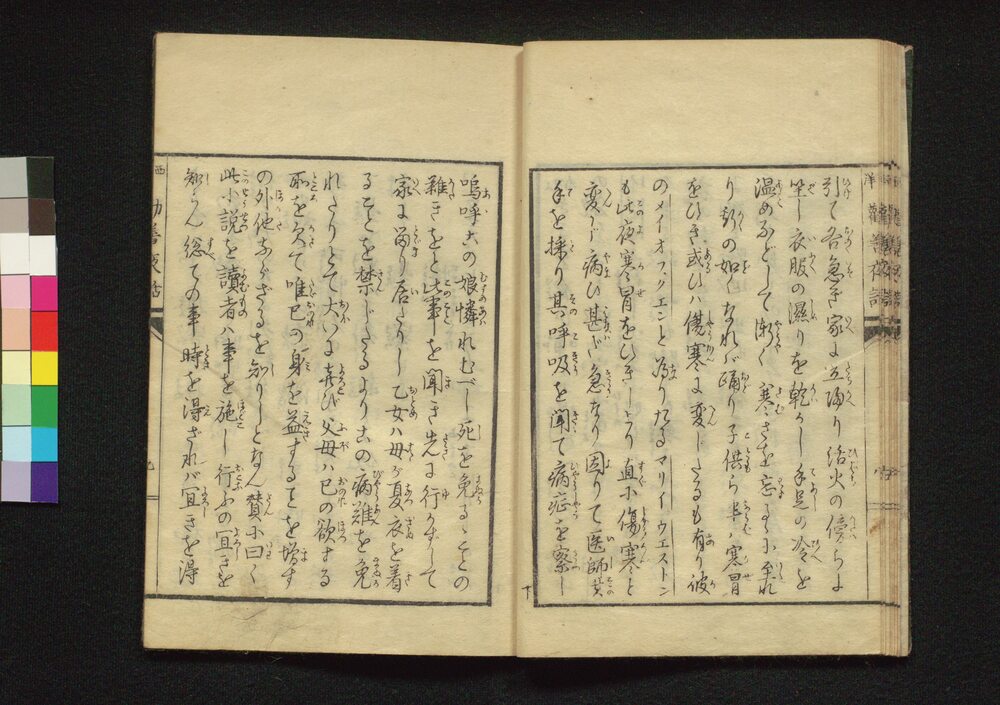 引て各急ぎ家に立帰り活火の傍らに
坐し衣服の濕りを乾かし手足の冷を
温めなどして漸く寒さを忘るゝに至れ
り斯の如くなれバ踊り子供ら半ハ寒冒
をひき或ひハ傷寒に変じたるも有り彼
のメイオフクエンと為りたるマリイウエストン
も此夜寒冒をひきしより直に傷寒と
変じ病ひ甚だ急なり因りて医師其
手を採り其呼吸を聞て病症を察し
嗚呼この娘憐れむべし死を免るゝことの
難きをと此事を聞き先に行かずして
家に留り居たりし乙女ハ母が夏衣を着
ることを禁じたるよりこの病難を免
れたりとて大いに喜び父母ハ己の欲する
所を欠て唯己の身を益することを増す
の外他なからざるを知りしとなん賛に曰く
此小説を讀者ハ事を施し行ふの宜きを
知らん総ての事時を得ざれバ宜きを得